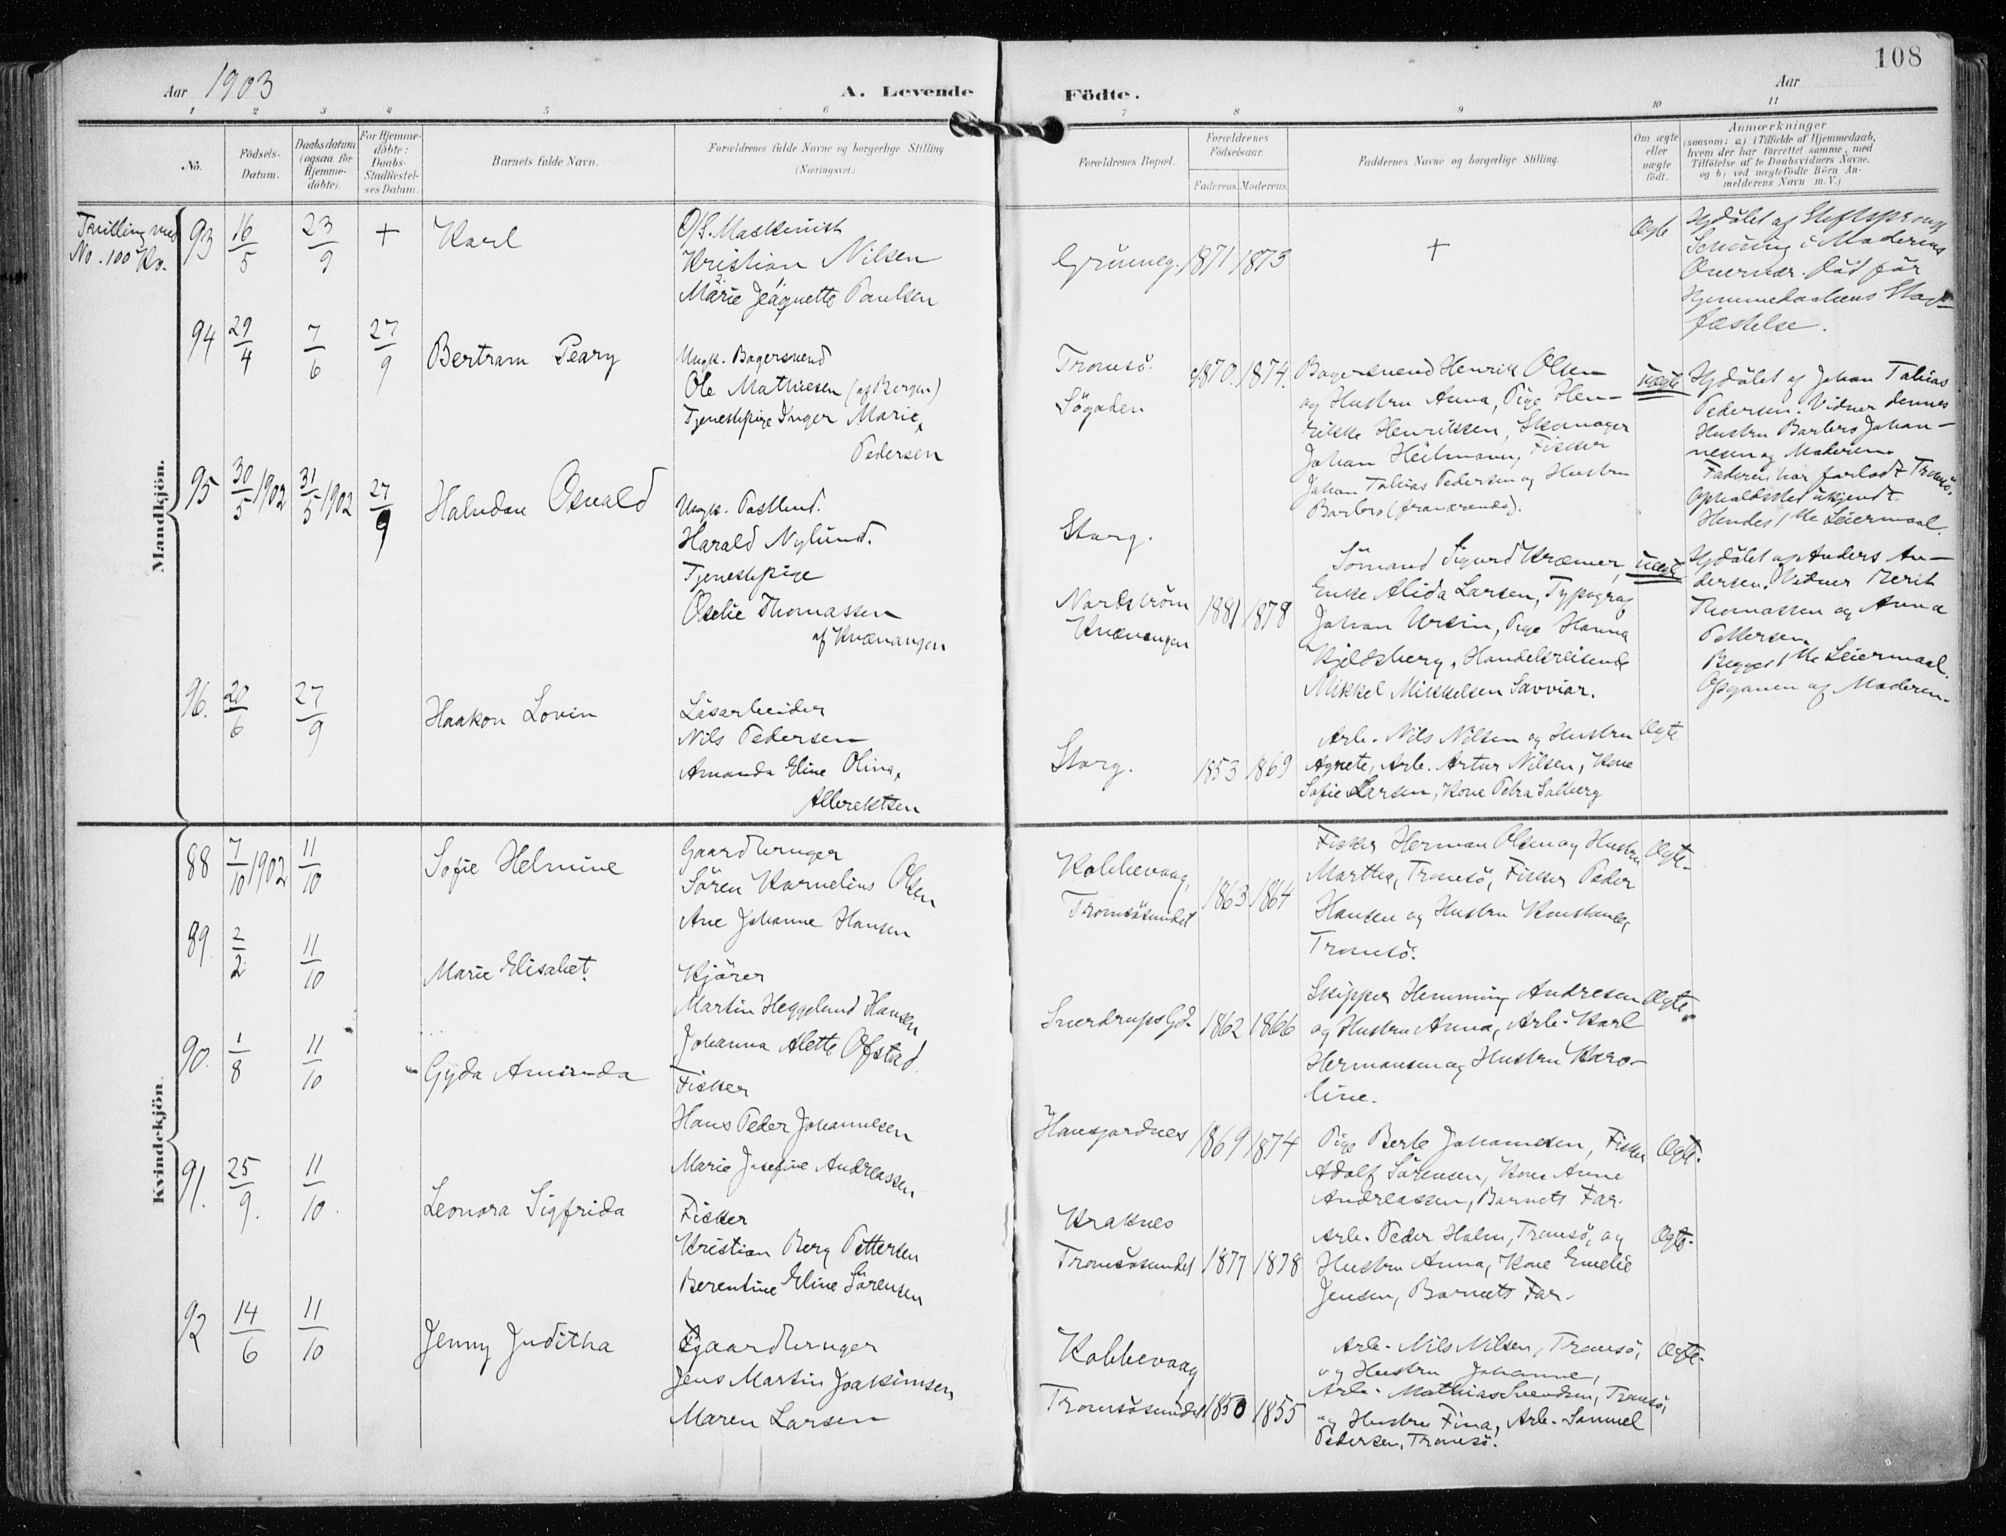 Aar 1903
A. Levende
Födte.
Aar
108
1 2 3 4 5 6 7 8 9 10 11
No.
Födsels-
Datum.
Daabsdatum
(ogsaa for
Hjemme-
döbte).
For Hjemme-
döbte:
Daabs-
Stadfæstel-
ses Datum.
Barnets fulde Navn.
Forældrenes fulde Navne og borgerlige Stilling
(Næringsvei.)
Forældrenes Bopæl.
Forældrenes
Födselsaar.
Faderens. Moderens.
Faddernes Navne og borgerlige Stilling.
Om ægte
eller
uægte
födt.
Anmærkninger
(saasom: a) i Tilfælde af Hjemmedaab,
hvem der har forrettet samme, med
Tilföielse af to Daabsvidners Navne,
og b) ved uægtefödte Börn An-
melderens Navn m. V.)
Mandkjön.
Tvilling med
No. 100 Kv.
93 16/5 23/9 + Karl
Maskinist
Kristian Nilsen
Marie Jeaquette Paulsen
Grünneg. 1871 1873
+
Ægte
Hjdöbt af
i Moderens
Död før
Hjemmedaabens Stad-
fæstelse.
94 29/4 7/6 27/9 Bertram Peary
Ungk. Bagersvend
Ole Mathiesen (af Bergen)
Tjenestepige Inger Marie
Pedersen
Tromsö.
Sögaden
1870. 1874.
Bagersvend Henrik Olsen
og Hustru Anna, Pige Hen-
rikke Henriksen, Skomager
Johan Heilmann, Fisker
Johan Tobias Pedersen og Hustru
Barbro (fraværende).
Uægte
Hjdöbt af Johan Tobias
Pedersen. Vidner dennes
Hustru Barbro Johan-
nesen og Moderen.
Faderen har forladt Tromsö,
Opholdssted ukjendt.
Hendes 1ste Leiermaal.
95 30/5 1902 31/5 1902 27/9 Halvdan Osvald
Ungk. Postbud.
Harald Nylund.
Tjenestepige
Oselie Thomassen
af Kvænangen
Storg.
Kvænangen
1881 1878
Sömand Sigurd Kræmer,
Enke Alida Larsen, Typograf
Johan Ursin, Pige Hanna
Kjeldsberg, Handelsreisende
Mikkel Mikkelsen Savviar.
Uægte
Hjdöbt af Anders An-
dersen. Vidner Berit
Thomassen og Anna
Pettersen.
Begges 1ste Leiermaal.
Opgaven af Moderen.
96. 20/6 27/9 Haakon Lovin
Lösarbeider
Nils Pedersen
Amanda Eline Olina
Albrektsen
Storg. 1853 1869
Arb. Nils Nilsen og Hustru
Agnete, Arb. Artur Nilsen, Kone
Sofie Larsen, Kone Petra Solberg
Ægte
Kvindekjön.
88 7/10 1902 11/10 Sofie Helmine
Gaardbruger
Sören Kornelius Olsen
Ane Johanne Hansen
Kobbevaag,
Tromsösundet
1863 1864
Fisker Herman Olsen og Hustru
Martha, Tromsö, Fisker Peder
Hansen og Hustru Konstance,
Tromsö.
Ægte.
89. 2/2 11/10 Marie Elisabet.
Kjörer
Martin Heggelund Hansen
Johanna Alette Ofstad.
SverdrupsGd. 1862 1866
Skipper Hemming Andresen
og Hustru Anna, Arb. Karl
Hermansen og Hustru Karo-
line.
Ægte.
90. 1/8 11/10 Gyda Aminda
Fisker
Hans Peder Johannesen
Marie Josefine Andreassen
Hansjordnes 1869 1874
Pige Berte Johannesen, Fisker
Adolf Sörensen, Kone Anne
Andreassen, Barnets Far.
Ægte.
91. 25/9. 11/10. Leonora Sigfrida
Fisker
Kristian Berg Pettersen
Berentine Eline Sörensen
Kraknes
Tromsösundet 1877 1878
Arb. Peder Holm, Tromsö, og
Hustru Anna, Kone Emelie
Jensen, Barnets Far.
Ægte.
92 14/6 11/10 Jenny Juditha
Gaardbruger
Jens Martin Joakimsen
Maren Larsen
Kobbevaag
Tromsösundet 1850 1855
Arb. Nils Nilsen, Tromsö,
og Hustru Johanne,
Arb. Mathias Svendsen, Tromsö,
og Hustru Fina, Arb. Samuel
Pedersen, Tromsö.
Ægte.